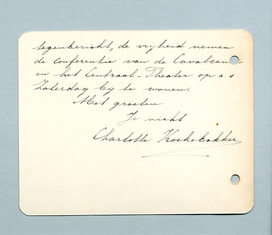 tegenbericht, de vrijheid nemen
de conferentie van de Cavalcade
in het Centraal-Theater op a.s.
Zaterdag bij te wonen.
Met groeten
Je nicht
Charlotte Kochebakker